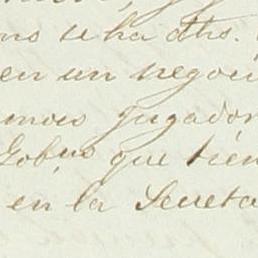 se ha dho.
en un negoci
jugador
Gobno que tien
en la Secreta